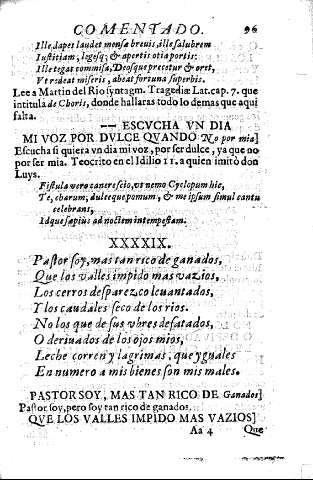 COMENTADO. 96
Ille, dapes laudet mensæ breuis, ille salubrem
Iustitiam, legesq; & apertis otia portis:
Ille tegat commisa, Deosque precetur & oret,
Vt redeat miseris, abeat fortuna superbis.
Lee a Martin del Rio syntagm. Tragediæ Lat. cap. 7. que
intitula de Choris, donde hallaras todo lo demas que aqui
falta.
— ESCVCHA VN DIA
MI VOZ POR DVLCE QVANDO No por mia]
Escucha si quiera vn dia mi voz, por ser dulce, ya que no
por ser mia. Teocrito en el Idilio 11. a quien imitò don
Luys.
Fistula vero canere scio, vt nemo Cyclopum hic,
Te, charum, dulce que pomum, & me ipsum simul cantu
celebrans,
Idque sæpius ad noctem intempestam.
XXXXIX.
Pastor soy, mas tan rico de ganados,
Que los valles impido mas vazios,
Los cerros desparezco leuantados,
Y los caudales seco de los rios.
No los que de sus vbres desatados,
O deriuados de los ojos mios,
Leche corren y lagrimas, que yguales
En numero a mis bienes son mis males.
PASTOR SOY, MAS TAN RICO DE Ganados]
Pastor soy, pero soy tan rico de ganados.
QVE LOS VALLES IMPIDO MAS VAZIOS]
Aa 4 Que